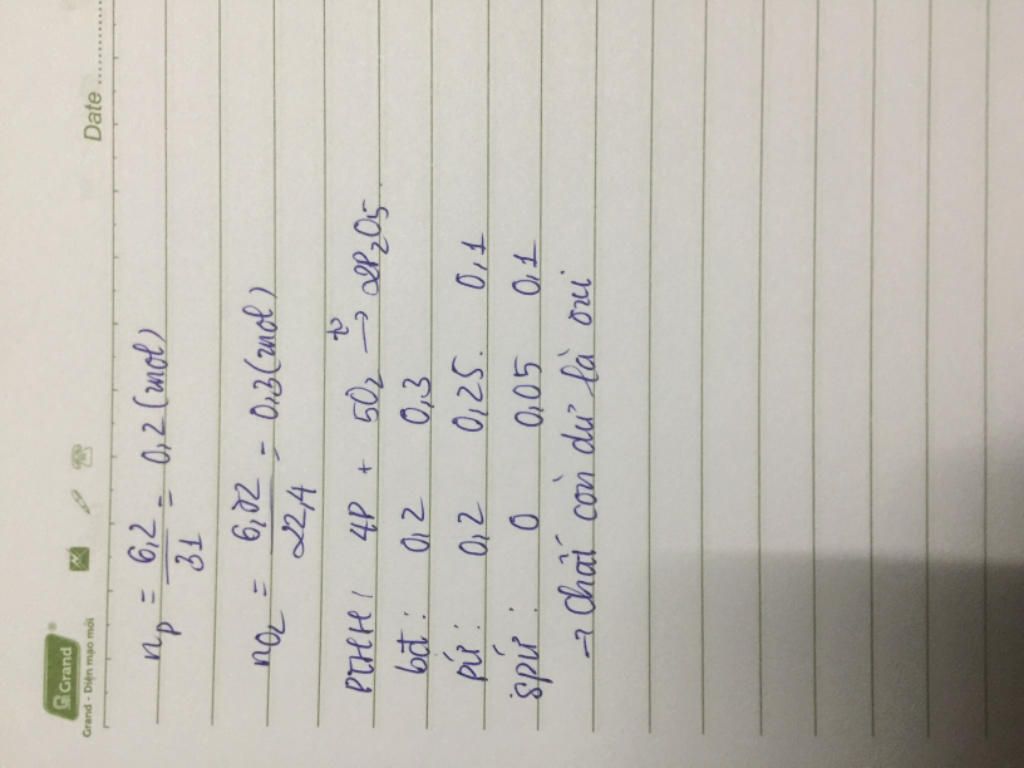 Grand
Grand - Diện mạo mới
Date
n_P = 6,2/31 = 0,2 (mol)
n_O2 = 6,72/22,4 = 0,3 (mol)
PTHH: 4P + 5O2 → 2P2O5
bđ: 0,2 0,3
pứ: 0,2 0,25 0,1
spứ: 0 0,05 0,1
→ chất còn dư là oxi